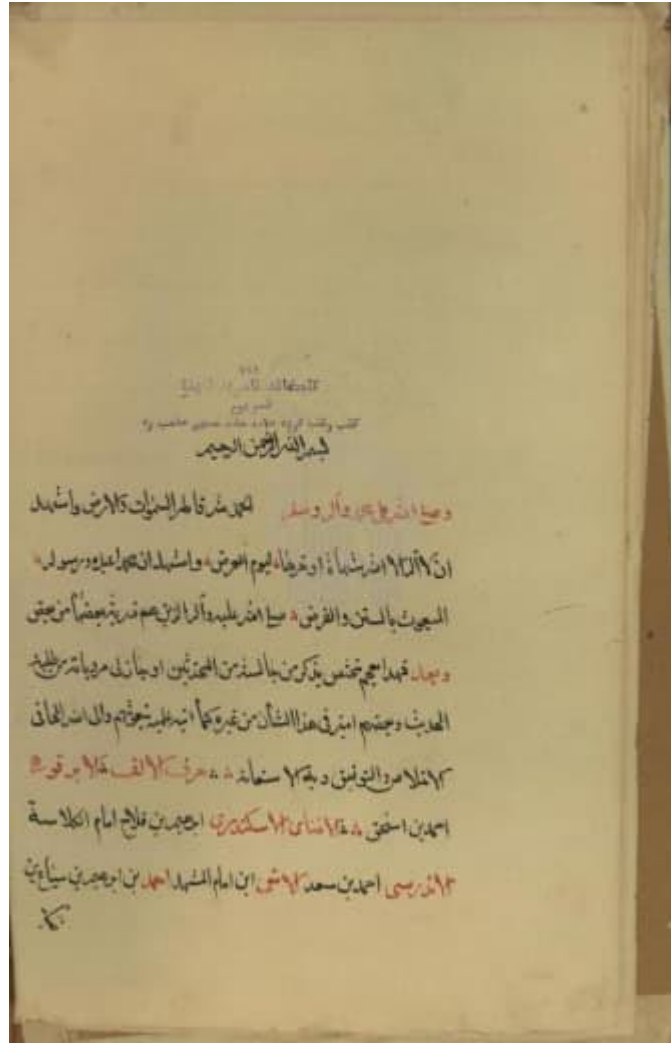 بسم الله الرحمن الرحيم
وصلى الله على محمد وآله وسلم الحمد لله فاطر السموات والارض واشهد
ان لا آله الا الله شهادة ليوم العرض واشهد ان محمدا عبده ورسوله
المبعوث بالسنن والفرض صلى الله عليه وآله الذين هم ذرية بعضها من بعض
وبعد فهذا معجم مختص بذكر من جالسته من المحدثين او اجاز لى مروياته من طلبة
الحديث وبعضهم اميز فى هذا الشأن من غيره كما انبه عليه والى الله
الاخلاص والتوفيق وبه الاستعانة حرف الالف الابرقوهى
احمد بن اسحق الاسكندرى ابرهيم بن فلاح امام الكلاسة
احمد بن سعد ابن امام المشهد احمد بن ابرهيم بن سباع بن